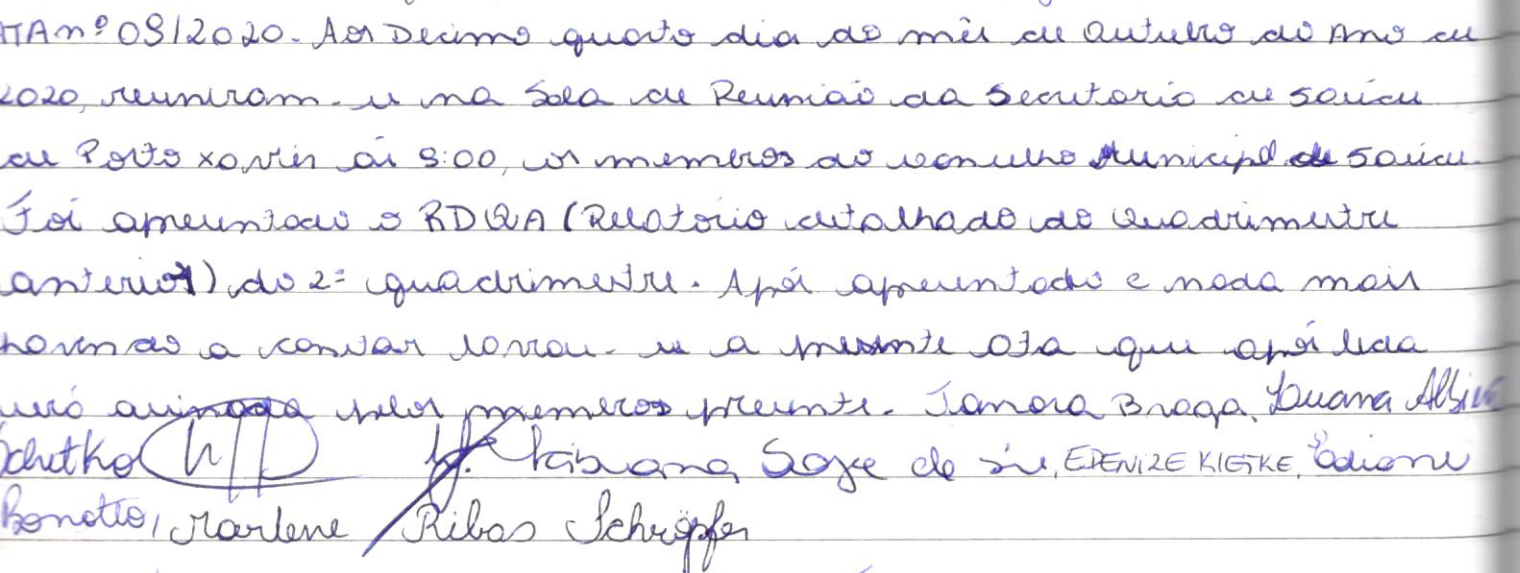 ATA nº 09/2020. Aos Decimo quarto dia do mês de Outubro do Ano de
2020, reuniram-se na Sala de Reunião da Secretaria de saúde
de Porto xavier às 9:00, os membros do conselho Municipal de saúde.
Foi apresentado o RDQA (Relatorio detalhado do Quadrimestre
anterior) do 2º quadrimestre. Após apresentado e nada mais
havendo a constar lavrou-se a presente ata que após lida
será assinada pelos membros presente. Tamara Braga, Luana
Schutko Fabiana, de EDENIZE KIETKE,
Bonotto, Marlene Ribas Schröpfer